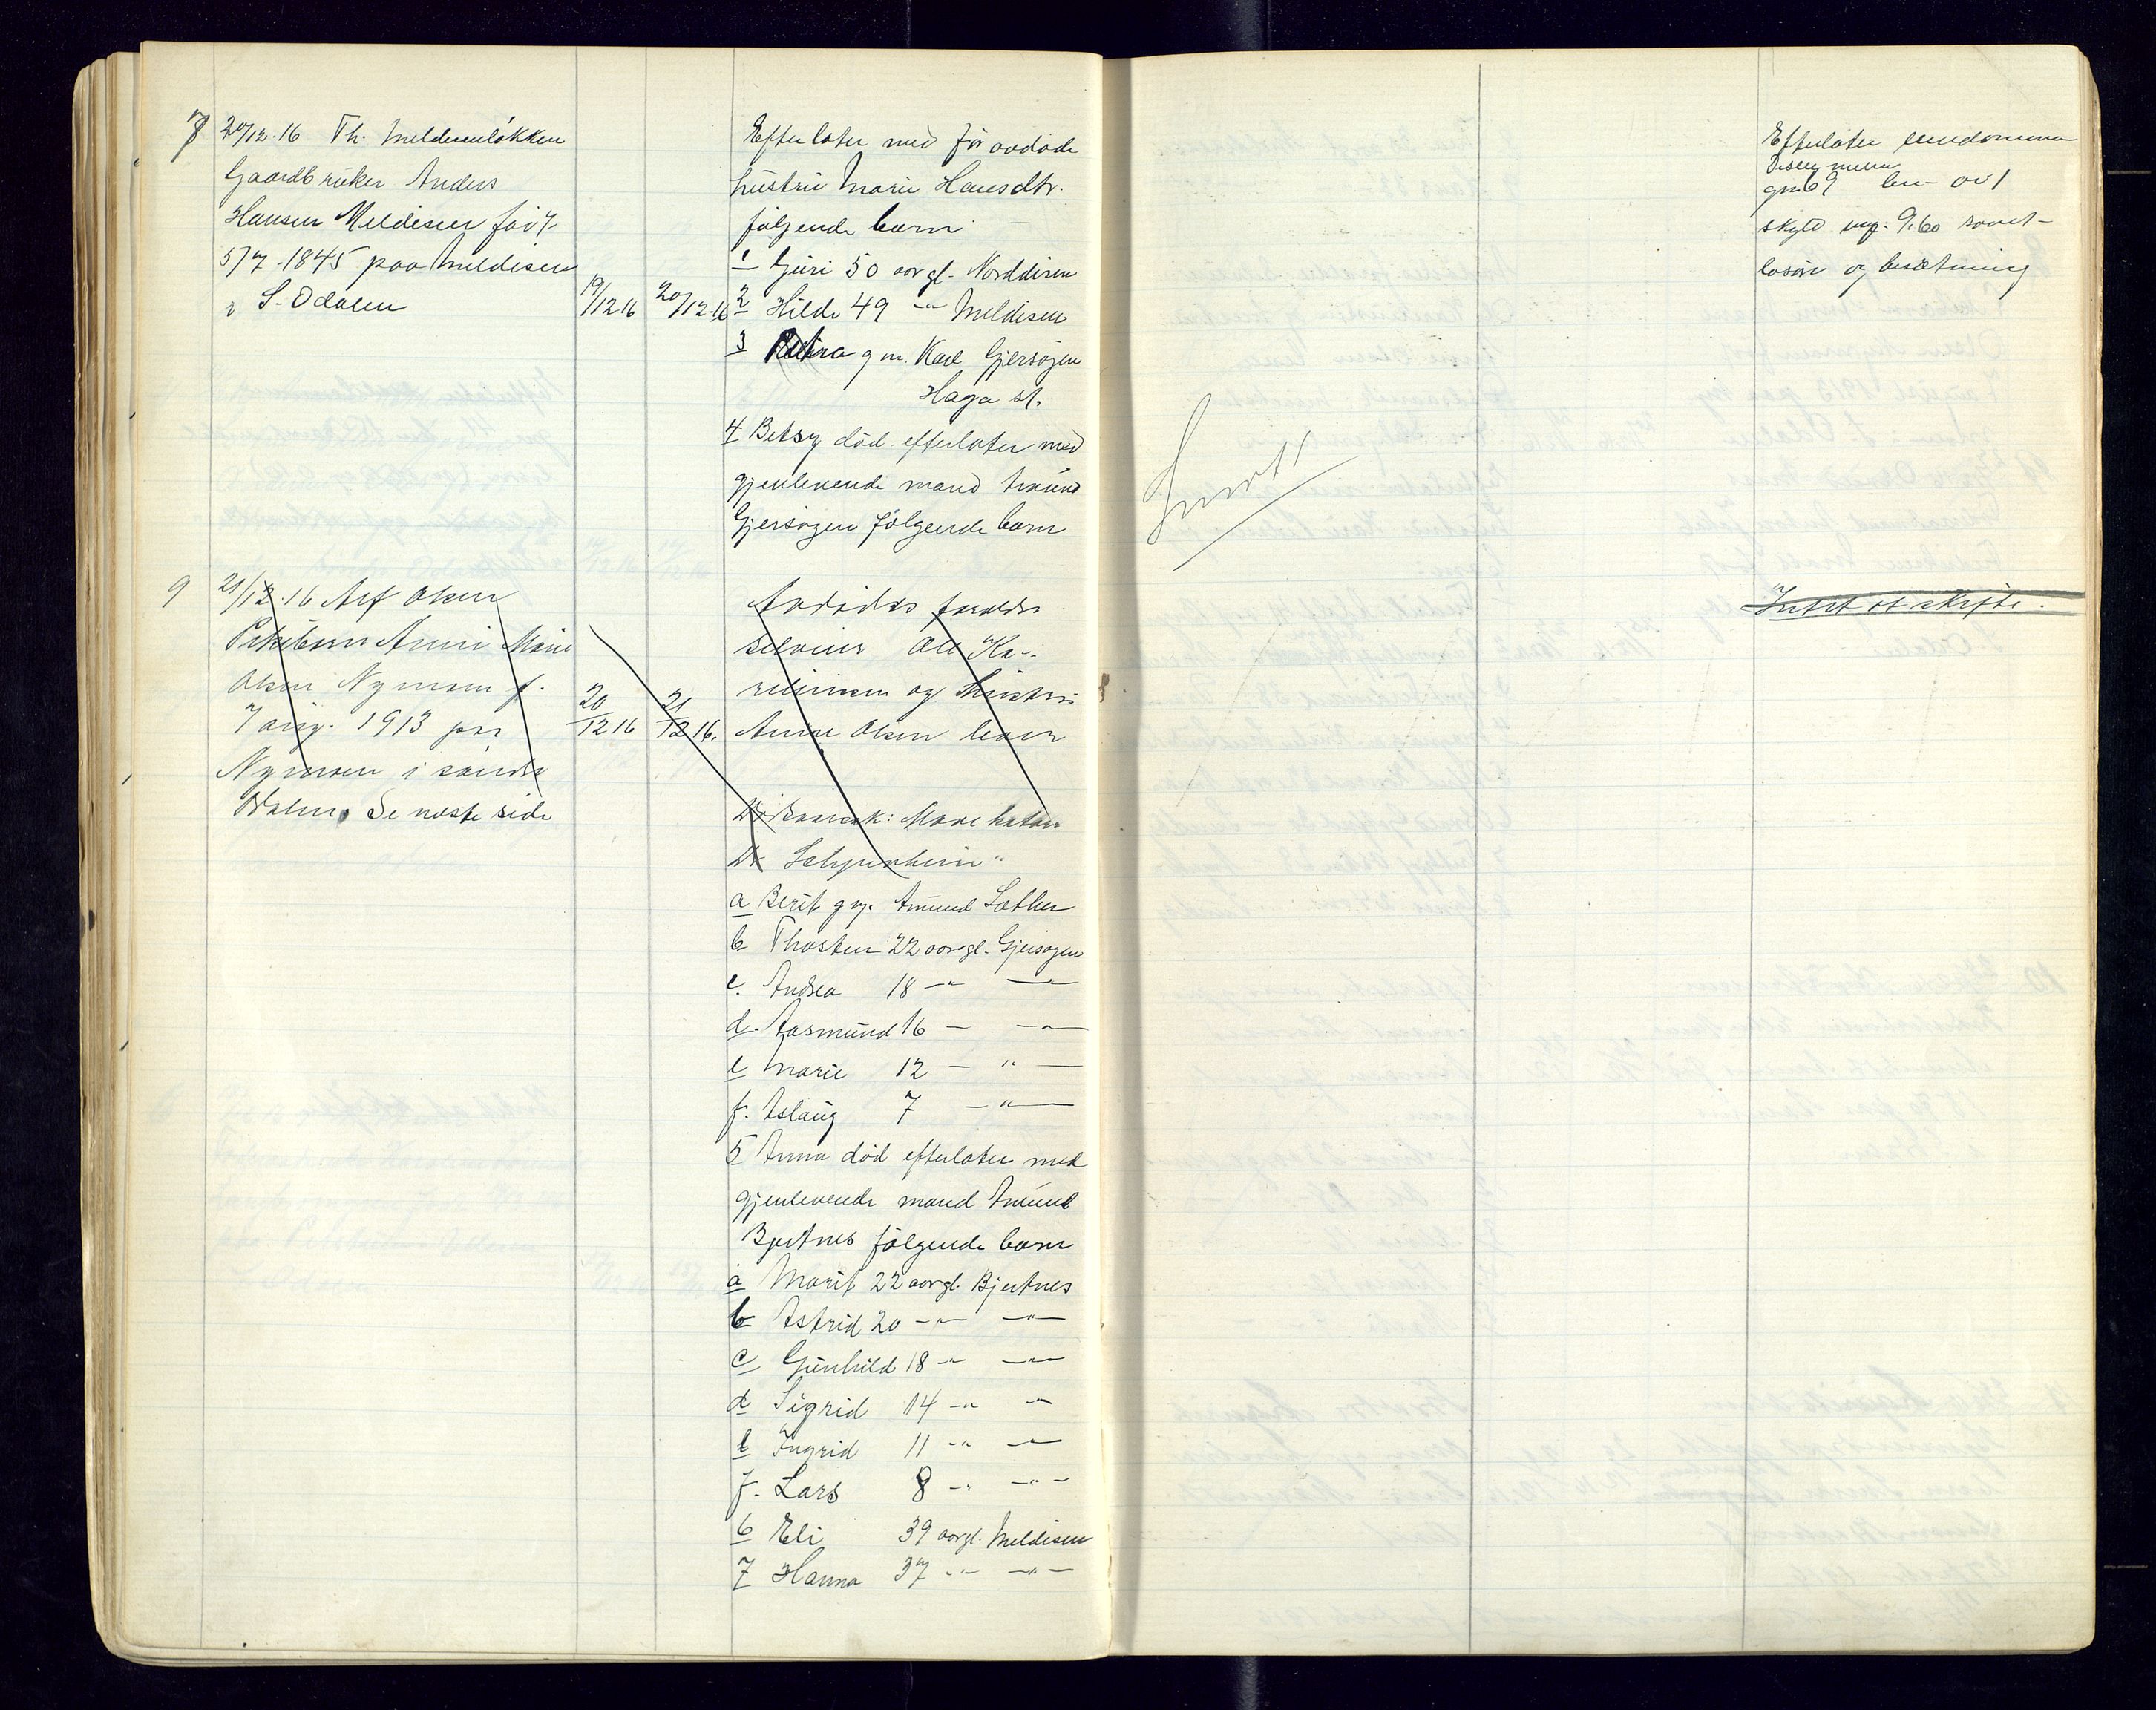 8 20/12-16 Th. Meldesenløkken
Gaardbruker Anders
Hansen Meldisen fød
5/7-1845 paa Meldisen
i S-Odalen
19/12 16 20/12-16
Efterlater med før avdøde
hustru Marie Hansdtr.
følgende barn
1 Guri 50 aar gl. Norddisen
2 Hilde 49 -"- Meldisen
3 Petra g m. Karl Gjersøyen
Haga st.
4 Betsy død. efterlater med
gjenlevende mand Amund
Gjersøyen følgende barn
9 21/12-16 Arf Olsen
Pikebarn Anni Marie
Olsen Nymoen f.
7 aug. 1913 paa
Nymoen i søndre
Odalen. Se næste side
20/12 16 21/12 16.
Avdødes forældre
Ole Ka-
og hustru
Anne Olsen lever
a Berit g m. Amund Sæther
b Thosten 22 aar gl. Gjersøyen
c. Andrea 18 -"- -"-
d. Aasmund 16 - -"-
e Marie 12 - " -
f. Aslaug 7 -"-
5 Anna død efterlater med
gjenlevende mand Amund
Bjertnes følgende barn
a Marit 22 aar gl. Bjertnes
b Astrid 20 -"- -"-
c Gunhild 18 -"- -"-
d Sigrid 14 -"- -"-
e Ingrid 11 -"- -"-
f. Lars 8 -"- -"-
6 Eli 39 aar gl. Meldisen
7 Hanna 37 -"- -"-
Efterlater eiendommen
gno 69 bn- av 1
skyld 9.60 samt
løsøre og besætning
Intet at skifte.